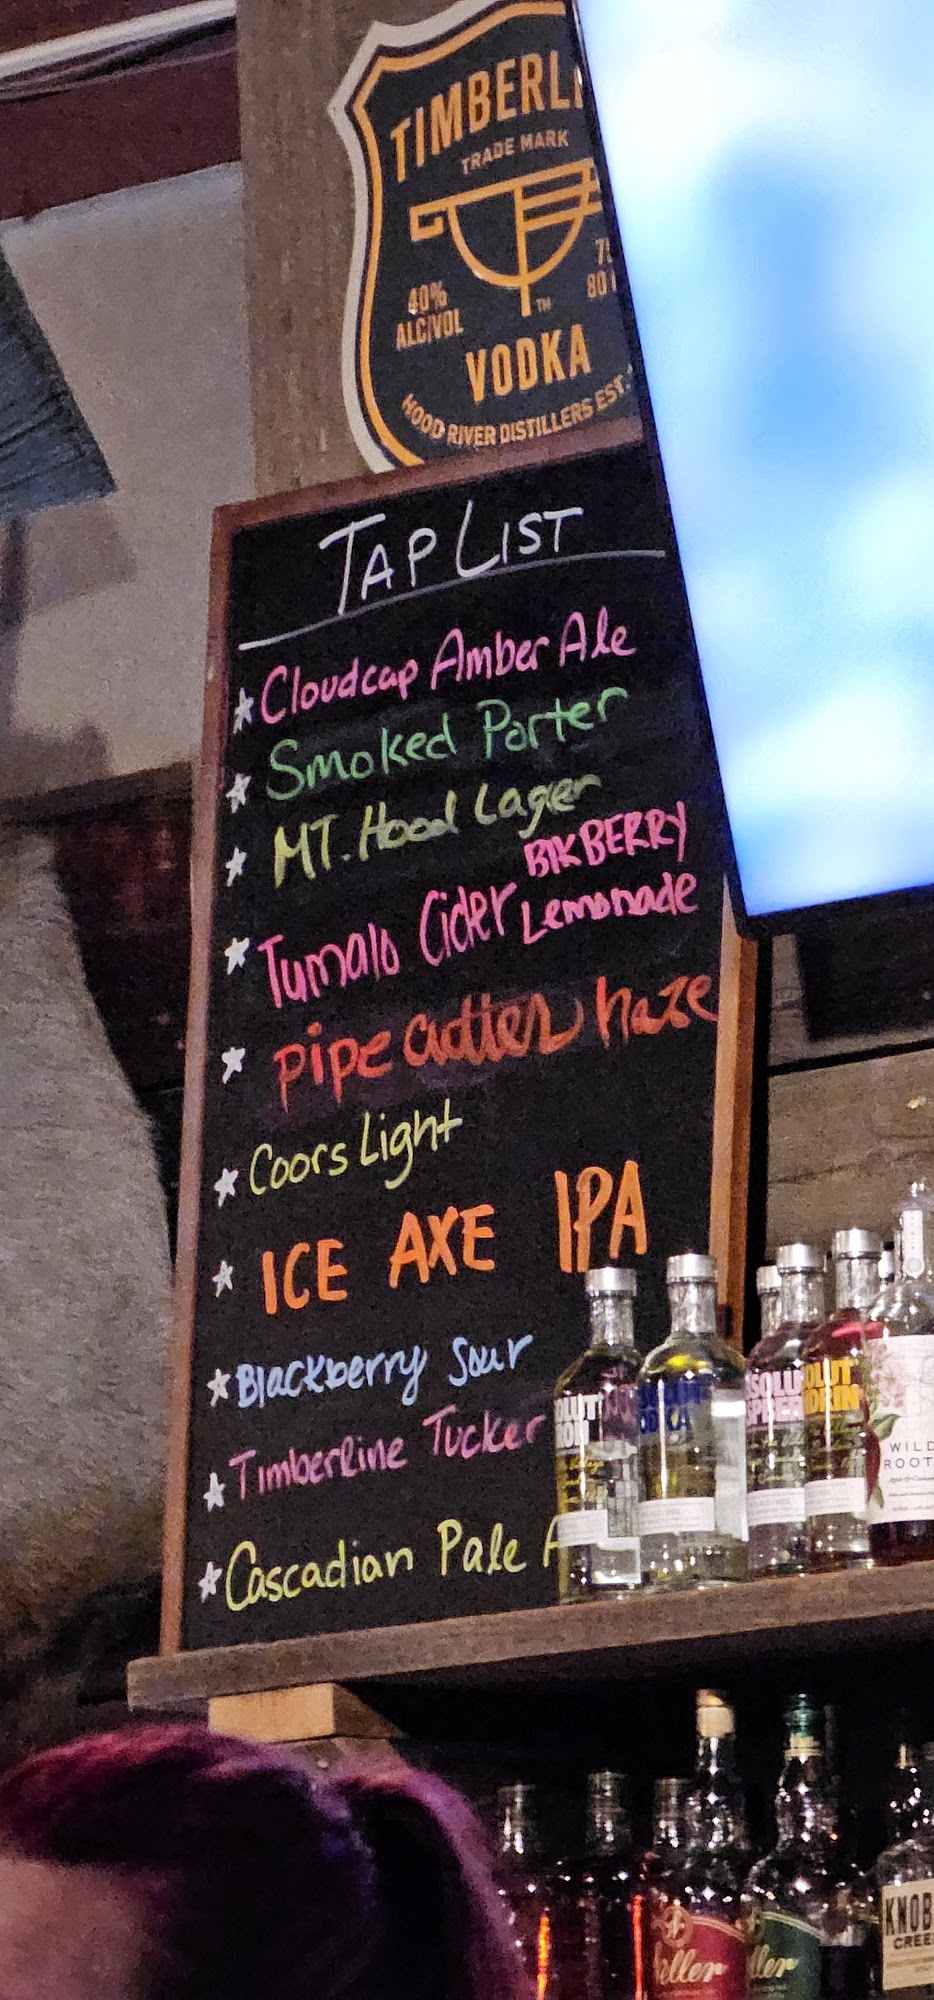 TIMBERLI
TRADE MARK
40%
ALC/VOL
80
TH
VODKA
HOOD RIVER DISTILLERS EST.
TAP LIST
Cloudcap Amber Ale
Smoked Porter
MT. Hood Lager
Tumalo Cider BlkBERRY
Lemonade
pipe cutter haze
Coors Light
ICE AXE IPA
Blackberry Sour
Timberline Tucker
Cascadian Pale A
OLUT
OLUT
DKA
SOLU
OLUT
WILD
ROOT
eller
ller
KNOB
CREE